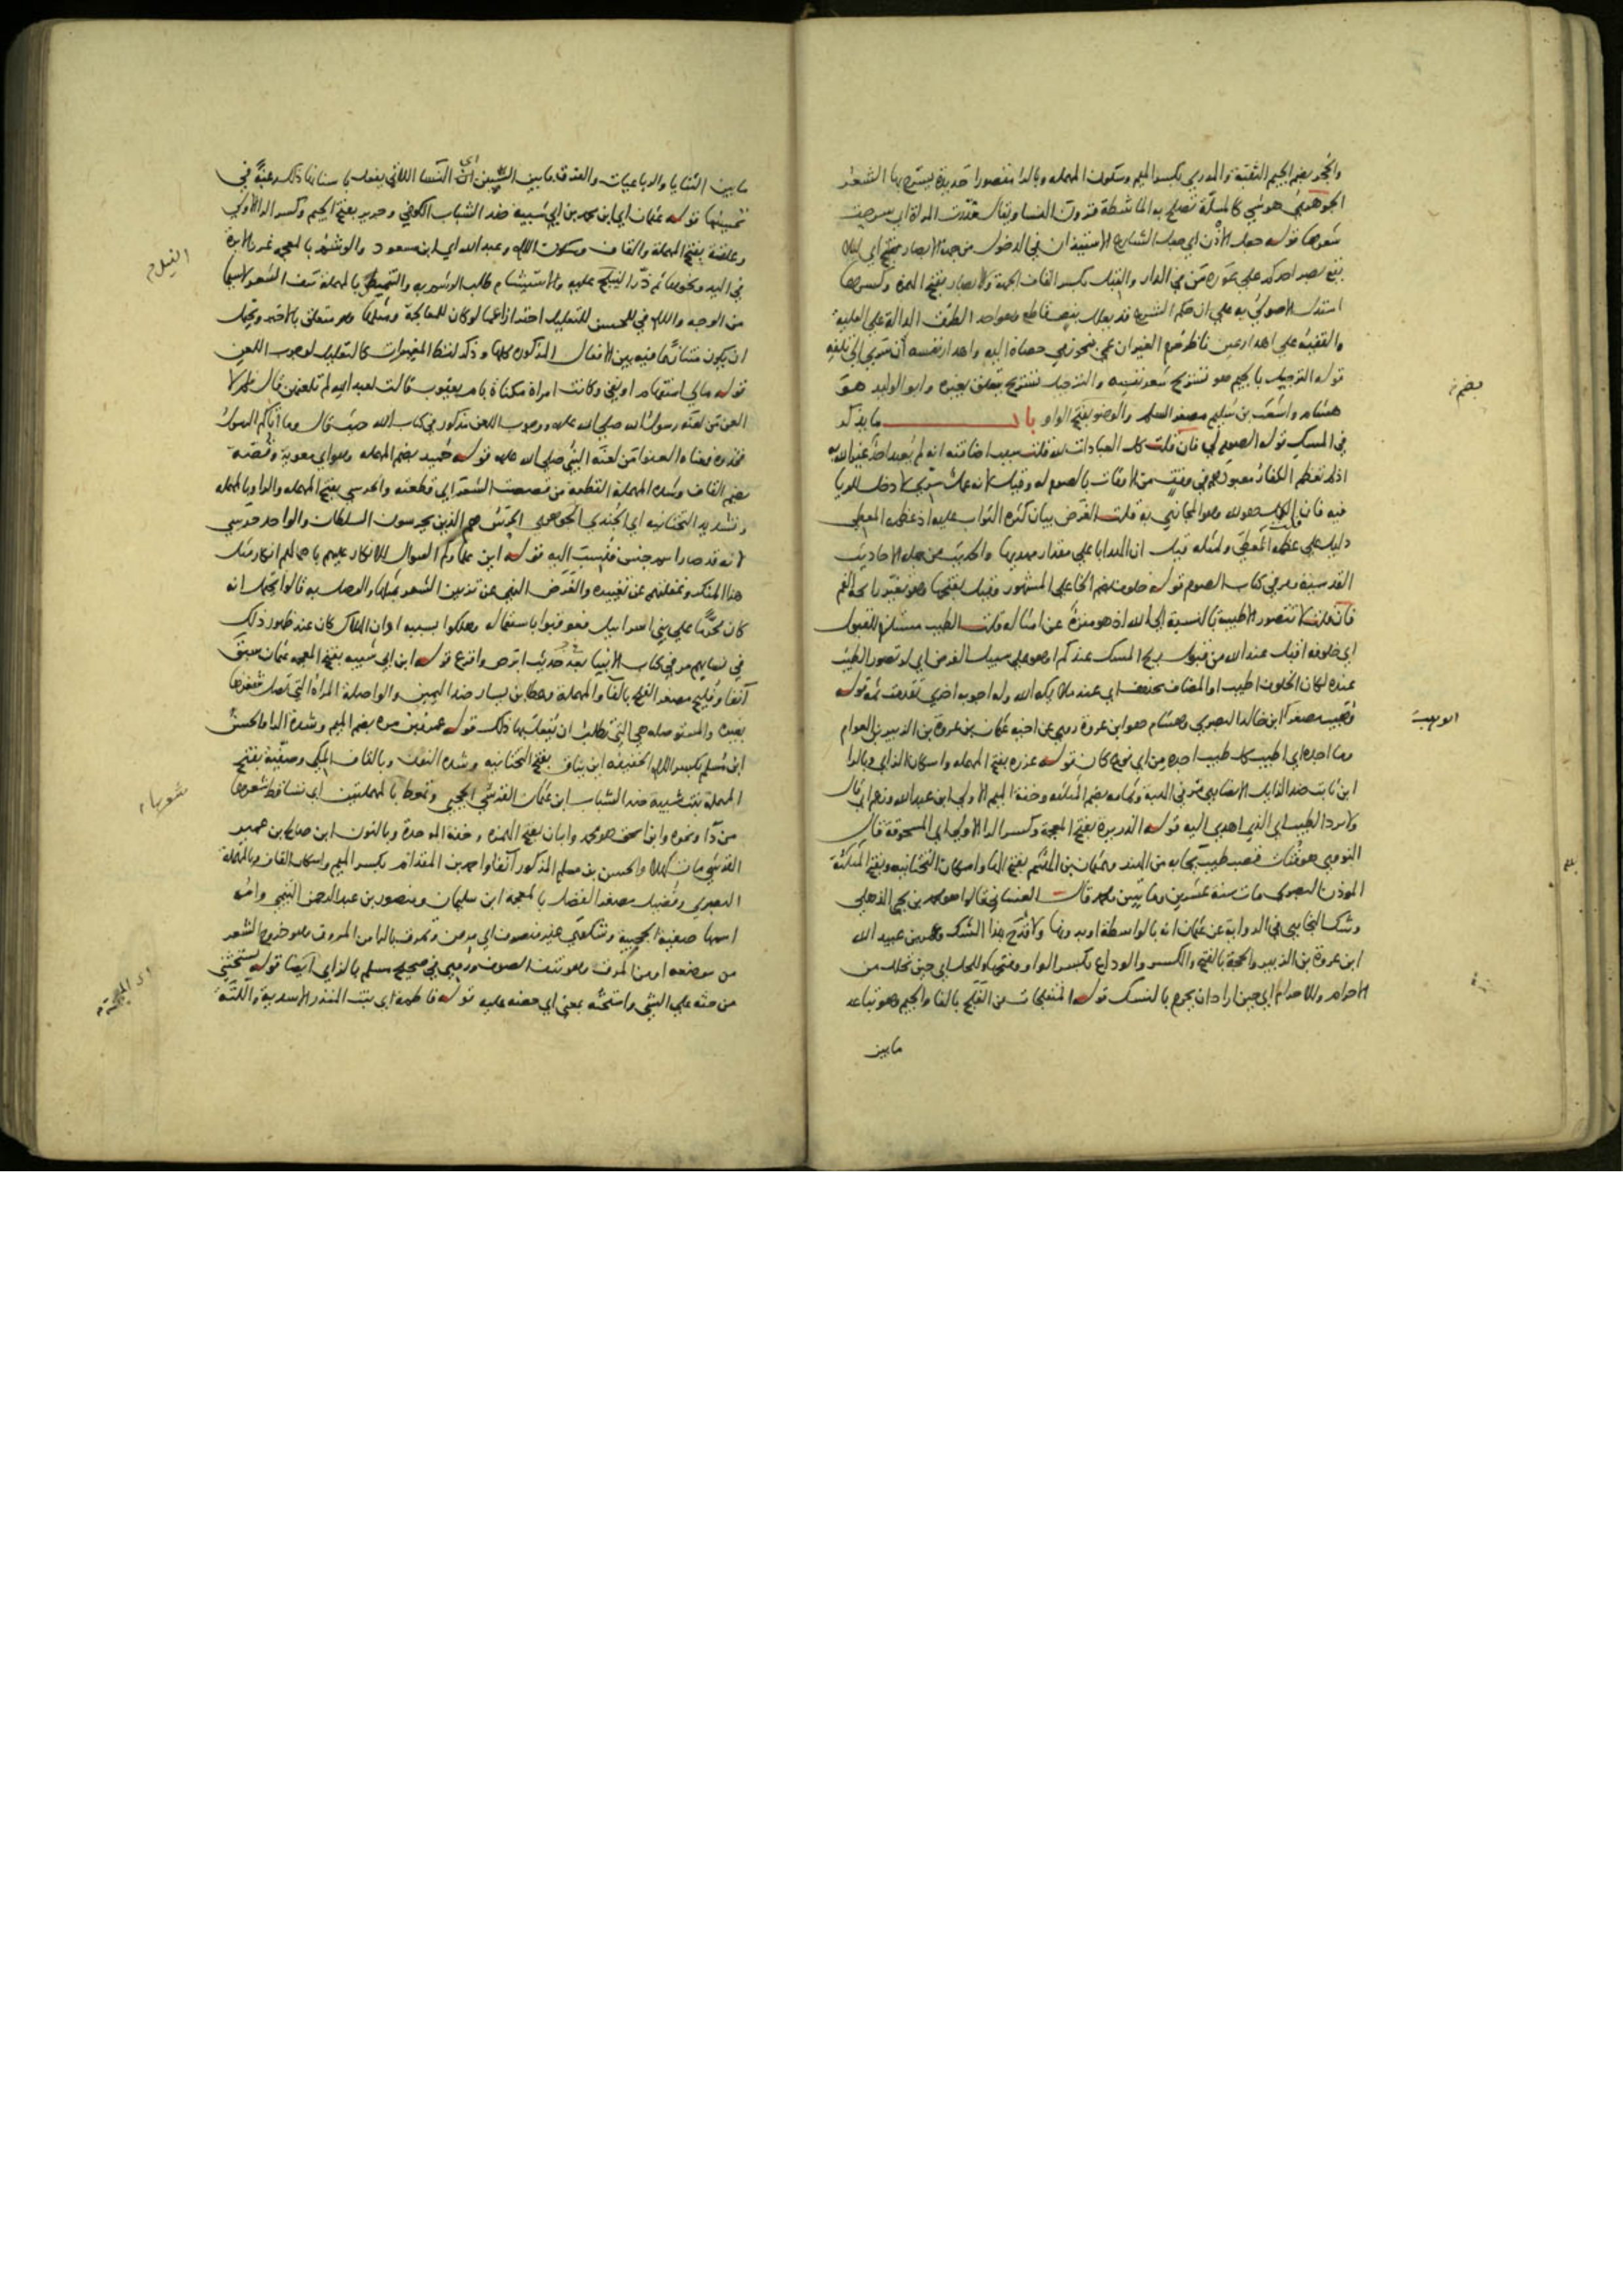 والجحر بضم الجيم الثقبة والمدرى بكسر الميم وسكون المهملة وبالراء مقصورا حديدة يسرح بها الشعر
الجوهري هو شي كالمسلة تصلح به الماشطة قرون النسا ويقال مدرت المراة اي سرحت
شعرها قوله جعل الاذن اي جعل الشارع الاستيذان في الدخول من جهة الابصار
يقع بصر احدكم على عورة من في الدار والقبل بكسر القاف الجهة والابصار بفتح الهمزة وكسرها
استدل الاصولي به على ان حكم الشرع قد يعلل بنص قاطع وهو احد الطرق الدالة على العلية
والفقيه على اهدار عين ناظر حرم الغير ان عمي بنحو رمي حصاة اليه واهدار نفسه ان سرى الى تلفه
قوله الترجيل بالجيم هو تسريح شعر نفسه والترجيل تسريح يتعلق بغيره وابو الوليد هو
هشام واشعث بن سليم مصغر السلم والوضو بفتح الواو باب ما يذكر
في المسك قوله الصوم لي فان قلت كل العبادات لله قلت سبب اضافته انه لم يعبد احد غير الله به
اذ لم تعظم الكفار معبودهم في وقت من الاوقات بالصوم له وقيل لانه عمل سري لا دخل للريا
فيه فان قلت الكل هو لله وهو المجازي به قلت الغرض بيان كثرة الثواب عليه اذ عظمة المعطي
دليل على عظمة المعطى ولمثله قيل ان الهدايا على مقدار مهديها والحديث من جملة الاحاديث
القدسية ومر في كتاب الصوم قوله خلوف بضم الخا على المشهور وقيل بفتحها وهو تغير رائحة الفم
فان قلت لا تتصور الاطيبية بالنسبة الى الله اذ هو منزه عن امثاله قلت الطيب مستلزم للقبول
اي خلوفه اقبل عند الله من قبول ريح المسك عندكم او هو على سبيل الفرض اي لو تصور الطيب
عنده لكان الخلوف اطيب او المضاف محذوف اي عند ملايكة الله وله اجوبة اخرى تقدمت ثمة قوله
وهيب مصغرا ابن خالد البصري وهشام هو ابن عروة روى عن اخيه عثمان بن عروة بن الزبير بن العوام
وما اجد اي اطيب كل طيب اجده من اي نوع كان قوله عزرة بفتح المهملة واسكان الزاي وبالراء
ابن ثابت ضد الزايل الانصاري مر في الهبة وثمامة بضم المثلثة وخفة الميم الاولى ابن عبد الله وزعم اي قال
ولا يرد الطيب اي الذي اهدي اليه قوله الذريرة بفتح المعجمة وكسر الراء الاولى اي المسحوقة قال
النووي هو فتات قصب طيب يجا به من الهند وعثمان بن الهيثم بفتح الها واسكان التحتانية وبفتح المثلثة
الموذن البصري مات سنة عشرين ومايتين ومحمد قال الغساني قالوا هو محمد بن يحيى الذهلي
وشك البخاري في الرواية عن عثمان انه بالواسطة او بدونها ولا قدح بهذا الشك وعمر بن عبد الله
ابن عروة بن الزبير والحجة بالفتح والكسر والوداع بكسر الواو وفتحها وللحل اي حين تحلل من
الاحرام وللاحرام اي حين اراد ان يحرم بالنسك قوله المتفلجات من الفلج بالفا والجيم وهو تباعد
ما بين
بضم
الوهيت
ما بين الثنايا والرباعيات والفرق ما بين السنين اي النسا اللاتي يفعلن باسنانها ذلك رغبة في
تحسينها قوله عثمان اي ابن محمد بن ابي شيبة ضد الشباب الكوفي وجرير بفتح الجيم وكسر الراء الاولى
وعلقمة بفتح المهملة والقاف وسكون اللام وعبد الله اي ابن مسعود والوشم بالمعجمة غرز الابرة
في اليد ونحوها ثم ذر النيلج عليه والاستيشام طلب الوشم به والتنميص بالمهملة نتف الشعر لا سيما
من الوجه واللام في للحسن للتعليل احترازا عما لو كان للمعالجة ومثلها وهو متعلق بالاخير ويحتمل
ان يكون متنازعا فيه بين الافعال المذكورة كلها وذكر لفظ المغيرات كالتعليل لوجوب اللعن
قوله مالي استفهام او نفي وكانت امراة مكناة بام يعقوب قالت لعبد الله لم تلعنهن فقال مالي لا
العن من لعنه رسول الله صلى الله عليه ووجوب اللعن مذكور في كتاب الله حيث قال وما آتاكم الرسول
فخذوه فمعناه العنوا من لعنه النبي صلى الله عليه قوله حميد بضم المهملة وهو اي معوية وقصة
بضم القاف وشدة المهملة القطعة من قصصت الشعر اي قطعته والحرسي بفتح المهملة والراء وبالمهملة
وتشديد التحتانية اي الجندي الجوهري الحرس هم الذين يحرسون السلطان والواحد حرسي
لانه قد صار اسم جنس فنسبت اليه قوله اين علماوكم السوال للانكار عليهم باهمالهم انكار مثل
هذا المنكر وغفلتهم عن تغييره والغرض النهي عن تزيين الشعر بمثلها والوصل به قالوا يحتمل انه
كان محرما على بني اسرائيل فعوقبوا باستعماله وهلكوا بسببه او ان الهلاك كان عند ظهور ذلك
في نسائهم مر في كتاب الانبيا بعد حديث ابرص واقرع قوله ابن ابي شيبة بفتح المعجمة عثمان سبق
آنفا وفليح مصغر الفلح بالفا والمهملة وعطا بن يسار ضد اليمين والواصلة المراة التي تصل شعرها
بغيره والمستوصلة هي التي تطلب ان يفعل بها ذلك قوله عمرو بن مرة بضم الميم وشدة الراء والحسن
ابن مسلم بكسر اللام الخفيفة ابن يناق بفتح التحتانية وشدة النون وبالقاف المكي وصفية بفتح
المهملة بنت شيبة ضد الشباب ابن عثمان القرشي الحجبي وتمعط بالمهملتين اي تساقط شعرها
من دا ونحوه وابن اسحق هو محمد وابان بفتح الهمزة وخفة الموحدة وبالنون ابن صالح بن عمير
القرشي مات كهلا والحسن بن مسلم المذكور آنفا واحمد بن المقدام بكسر الميم واسكان القاف وبالمهملة
البصري وفضيل مصغر الفضل بالمعجمة ابن سليمان ومنصور بن عبد الرحمن التيمي وامه
اسمها صفية الحجبية وشكوى غير منصرف اي مرض وتمرق بالراء من المروق وهو خروج الشعر
من موضعه او من المرق وهو نتف الصوف وروي في صحيح مسلم بالزاي ايضا قوله يستحثني
من حثه على الشي واستحثه بمعنى اي حضه عليه قوله فاطمة اي بنت المنذر الاسدية واللثة
النيل م
شعرها م